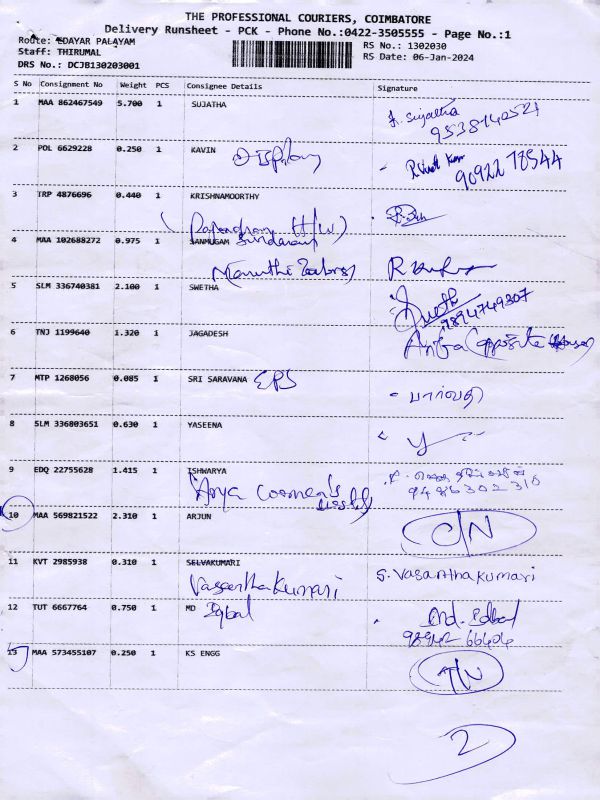 THE PROFESSIONAL COURIERS, COIMBATORE
Delivery Runsheet - PCK - Phone No.:0422-3505555 - Page No.:1
Route: EDAYAR PALAYAM
Staff: THIRUMAL
DRS No.: DCJB130203001
RS No.: 1302030
RS Date: 06-Jan-2024
S No Consignment No Weight PCS Consignee Details Signature
1 MAA 862467549 5.700 1 SUJATHA
Sujatha
2 POL 6629228 0.250 1 KAVIN
90922 78544
3 TRP 4876696 0.440 1 KRISHNAMOORTHY
4 MAA 102688272 0.975 1 SANMUGAM
5 SLM 336740381 2.100 1 SWETHA
7894749307
6 TNJ 1199640 1.320 1 JAGADESH
Opposite
7 MTP 1268056 0.085 1 SRI SARAVANA EPS
பார்வதி
8 SLM 336803651 0.630 1 YASEENA
9 EDQ 22755628 1.415 1 ISHWARYA
9486302310
10 MAA 569821522 2.310 1 ARJUN C/N
11 KVT 2985938 0.310 1 SELVAKUMARI
Vasanthakumari S. Vasanthakumari
12 TUT 6667764 0.750 1 MD Iqbal
98942 66404
13 MAA 573455107 0.250 1 KS ENGG
2